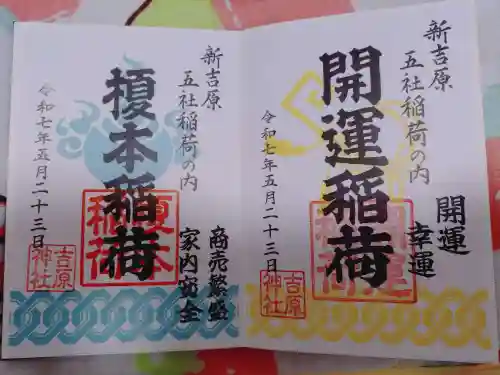 新吉原
五社稲荷の内
開運
幸運
開運稲荷
開運稲荷
令和七年五月二十三日
吉原神社
新吉原
五社稲荷の内
商売繁盛
家内安全
榎本稲荷
榎本稲荷
令和七年五月二十三日
吉原神社